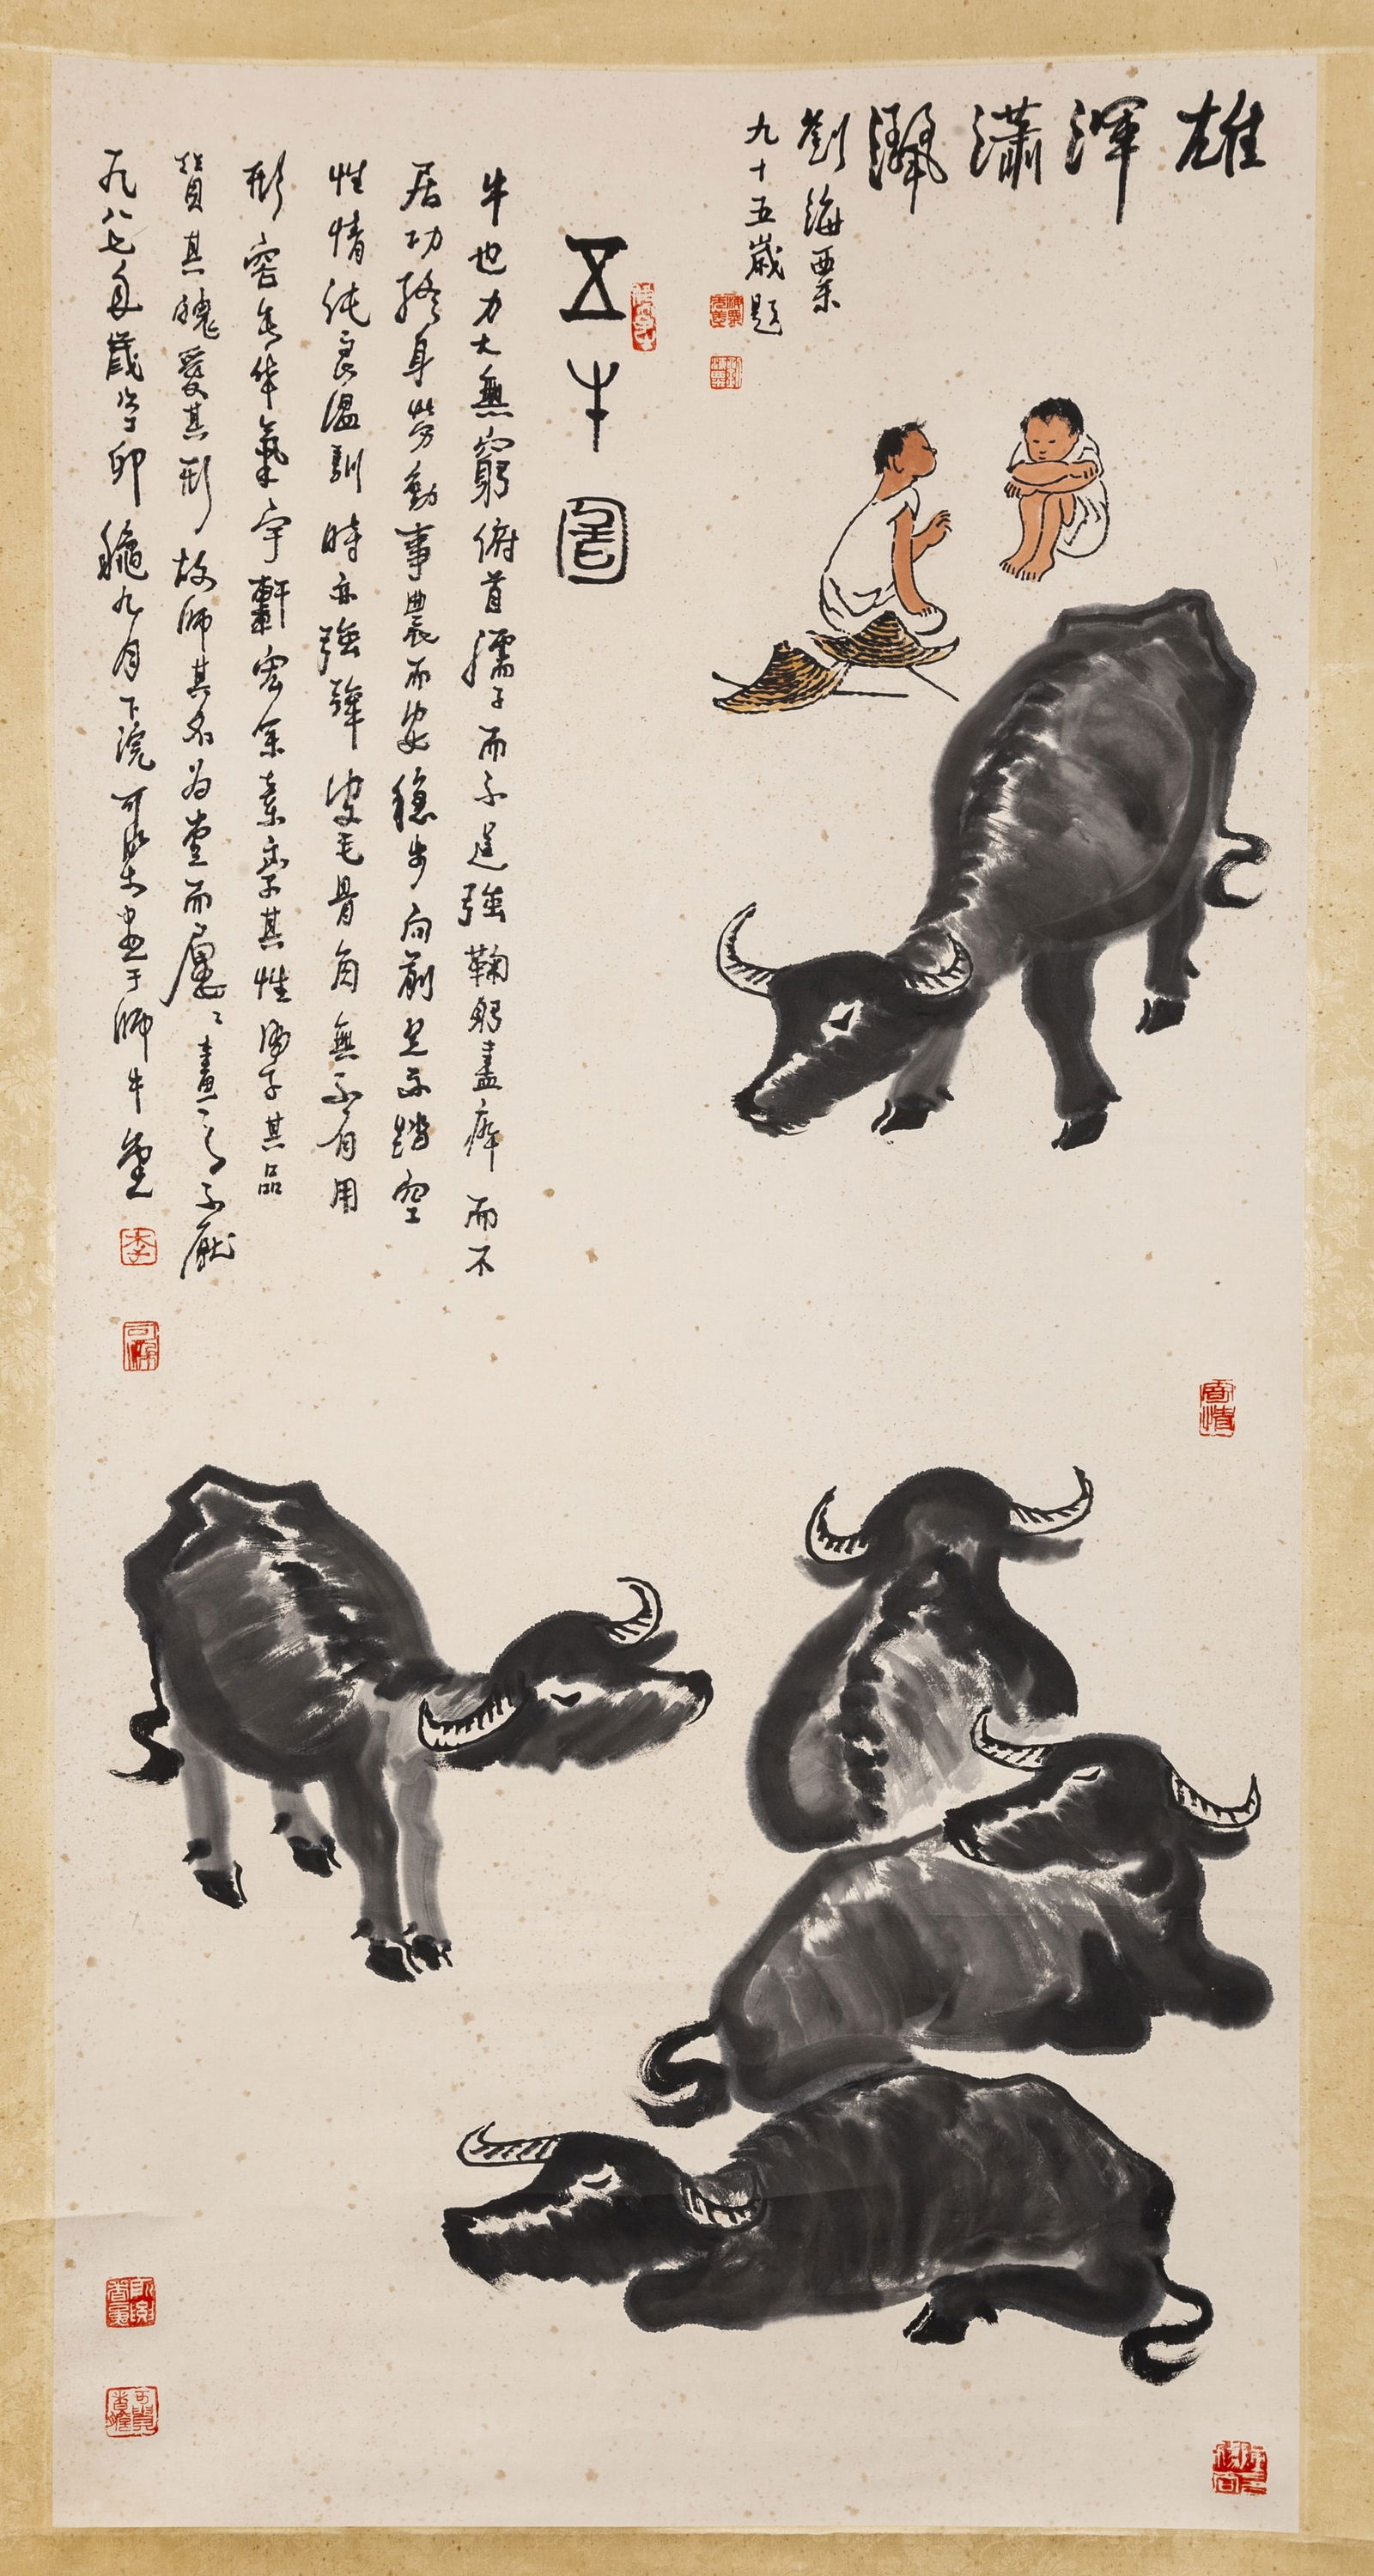 雄渾瀟灑
劉海粟
九十五歲題
五牛圖
牛也力大無窮俯首孺子而不逞強鞠躬盡瘁而不
居功終身勞動事農而安穩步向前足不踏空
性情純良溫馴時亦強犟皮毛骨角無不有用
形容無華氣宇軒宏余崇其性愛其品
其魂愛其形故師其名為堂而屢畫之不厭
一九八七年歲丁卯龝九月下浣可染畫于師牛堂
李